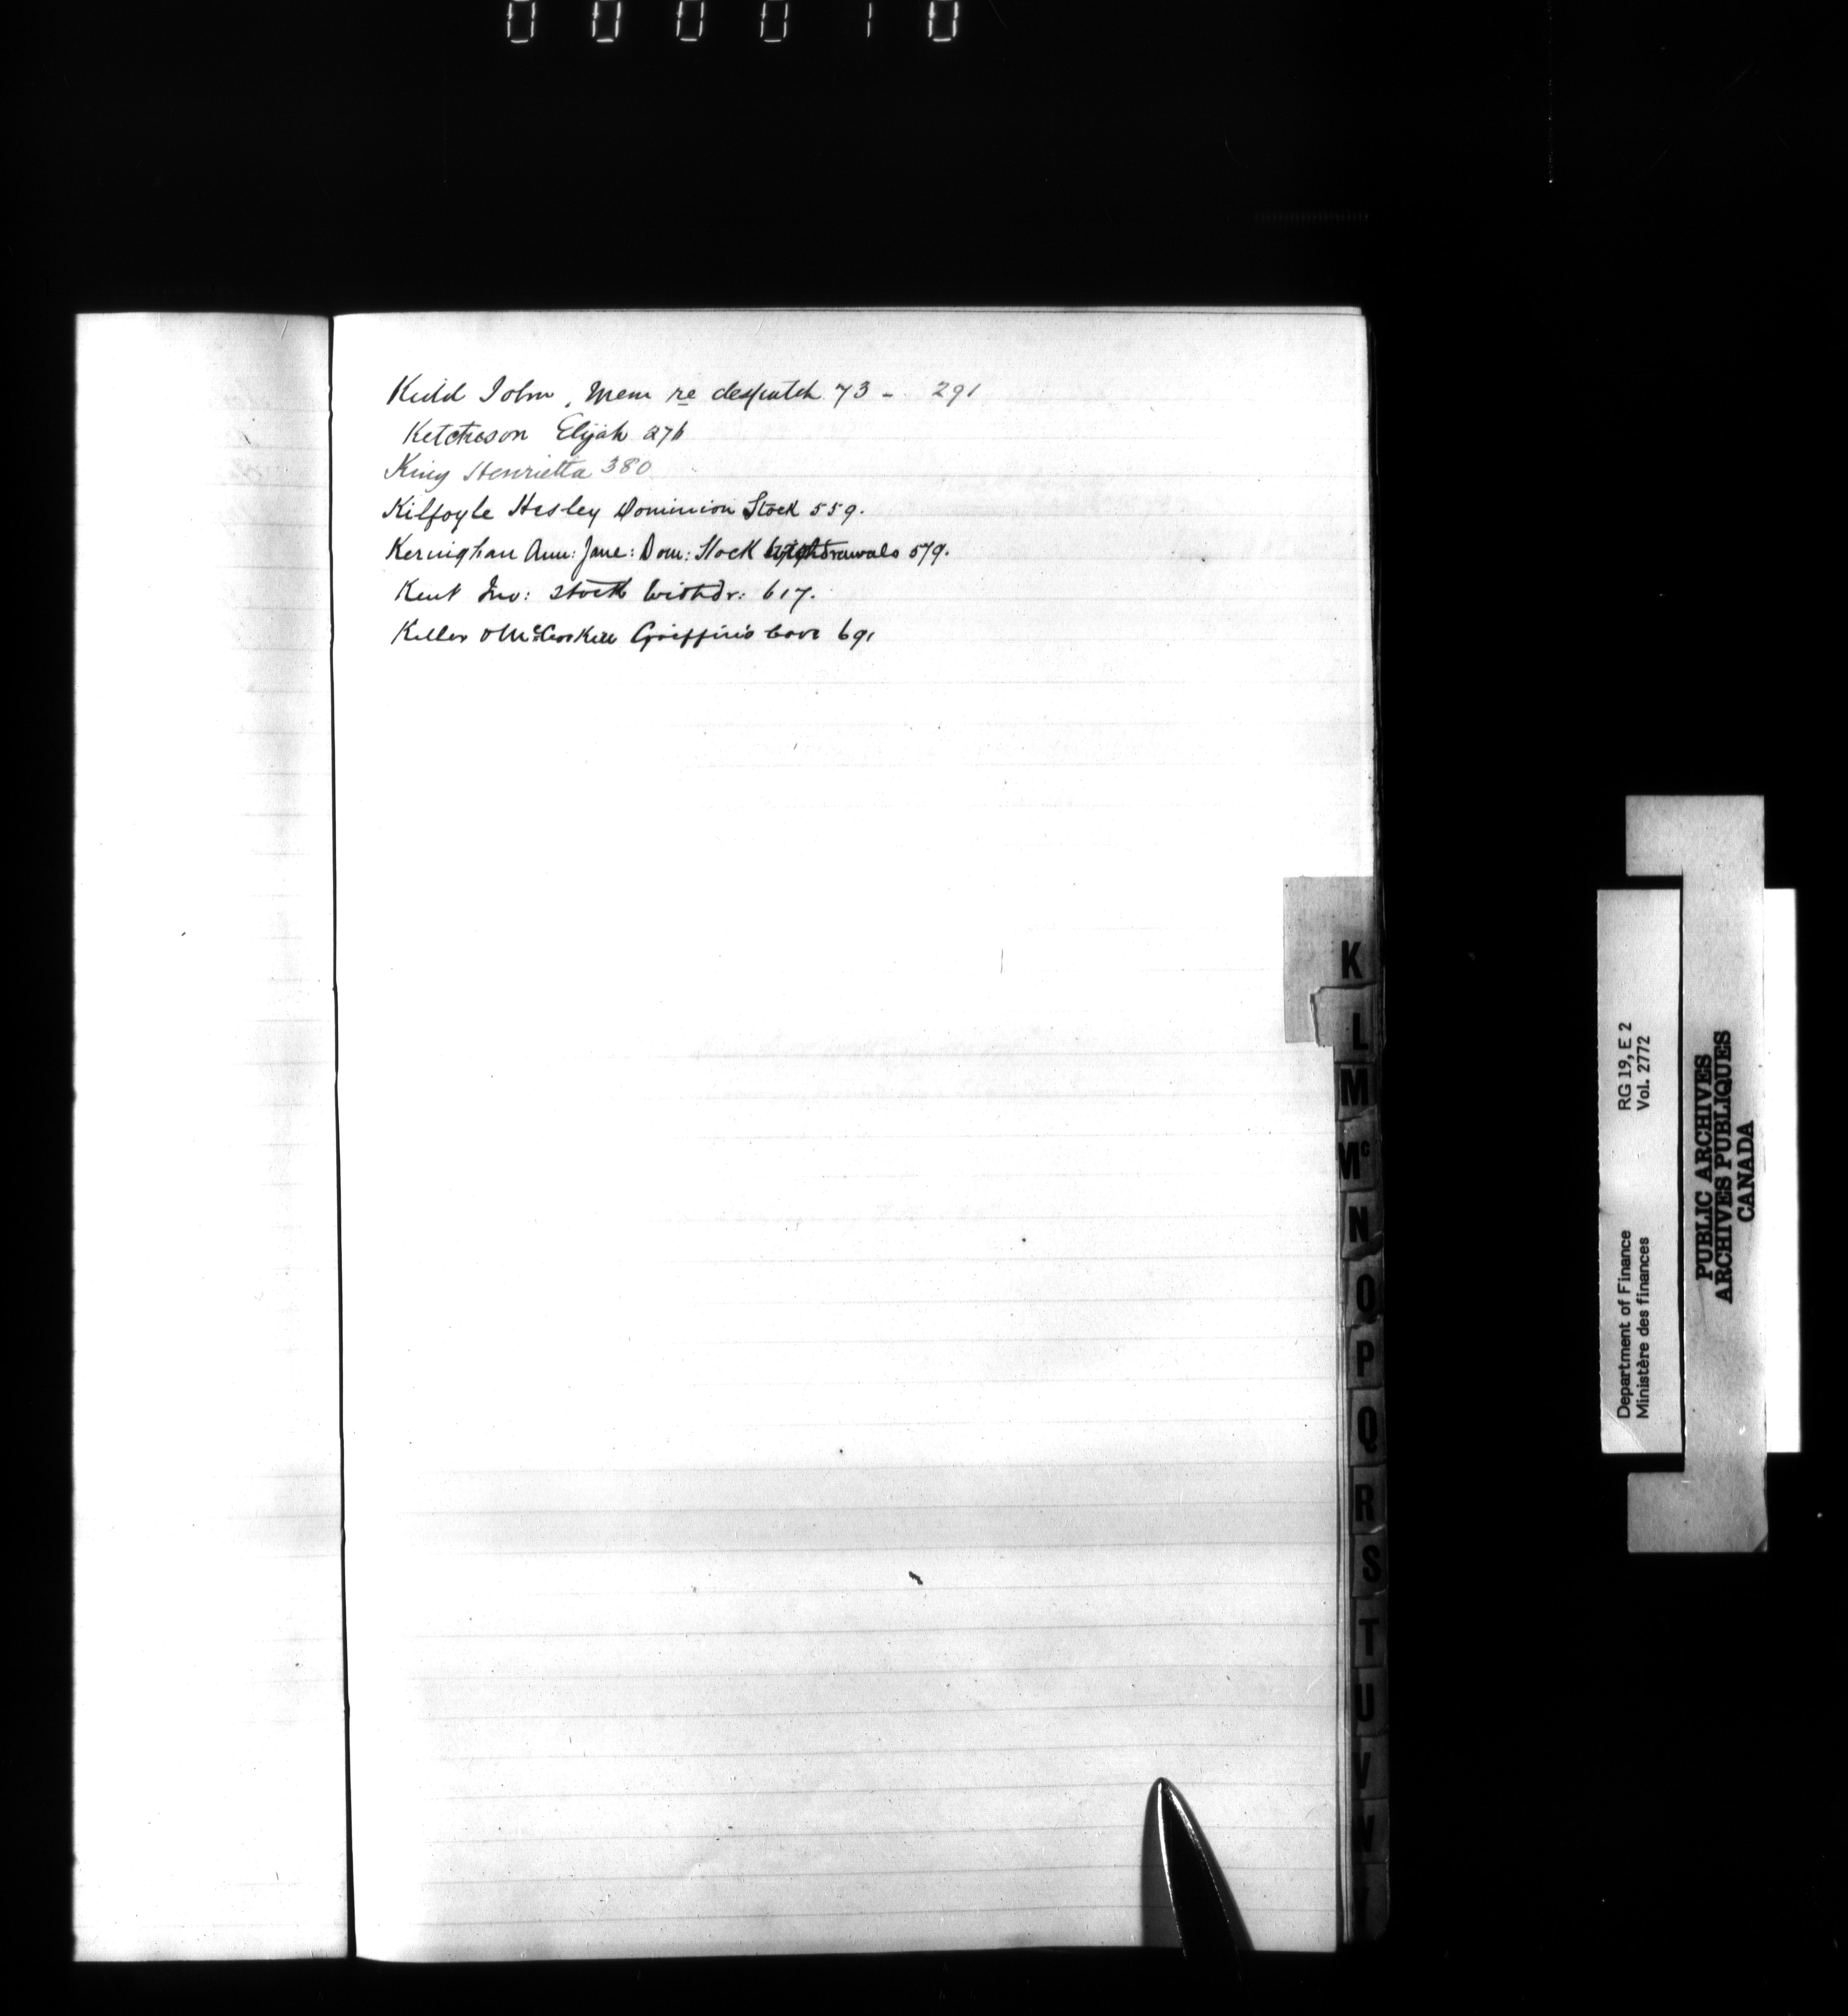 000010
Kidd John, Mem re despatch 73 - 291
Ketcheson Elijah 276
King Henrietta 380
Kilfoyle Hesley Dominion Stock 559.
Keringhan Ann: Jane: Dom: Stock withdrawals 579.
Kent Jno: Stock Withdr: 617.
Keller & Griffin's Cove 691
K
L
M
Mc
N
O
P
Q
R
S
T
U
V
W
Department of Finance RG 19, E 2
Ministère des finances Vol. 2772
PUBLIC ARCHIVES
ARCHIVES PUBLIQUES
CANADA